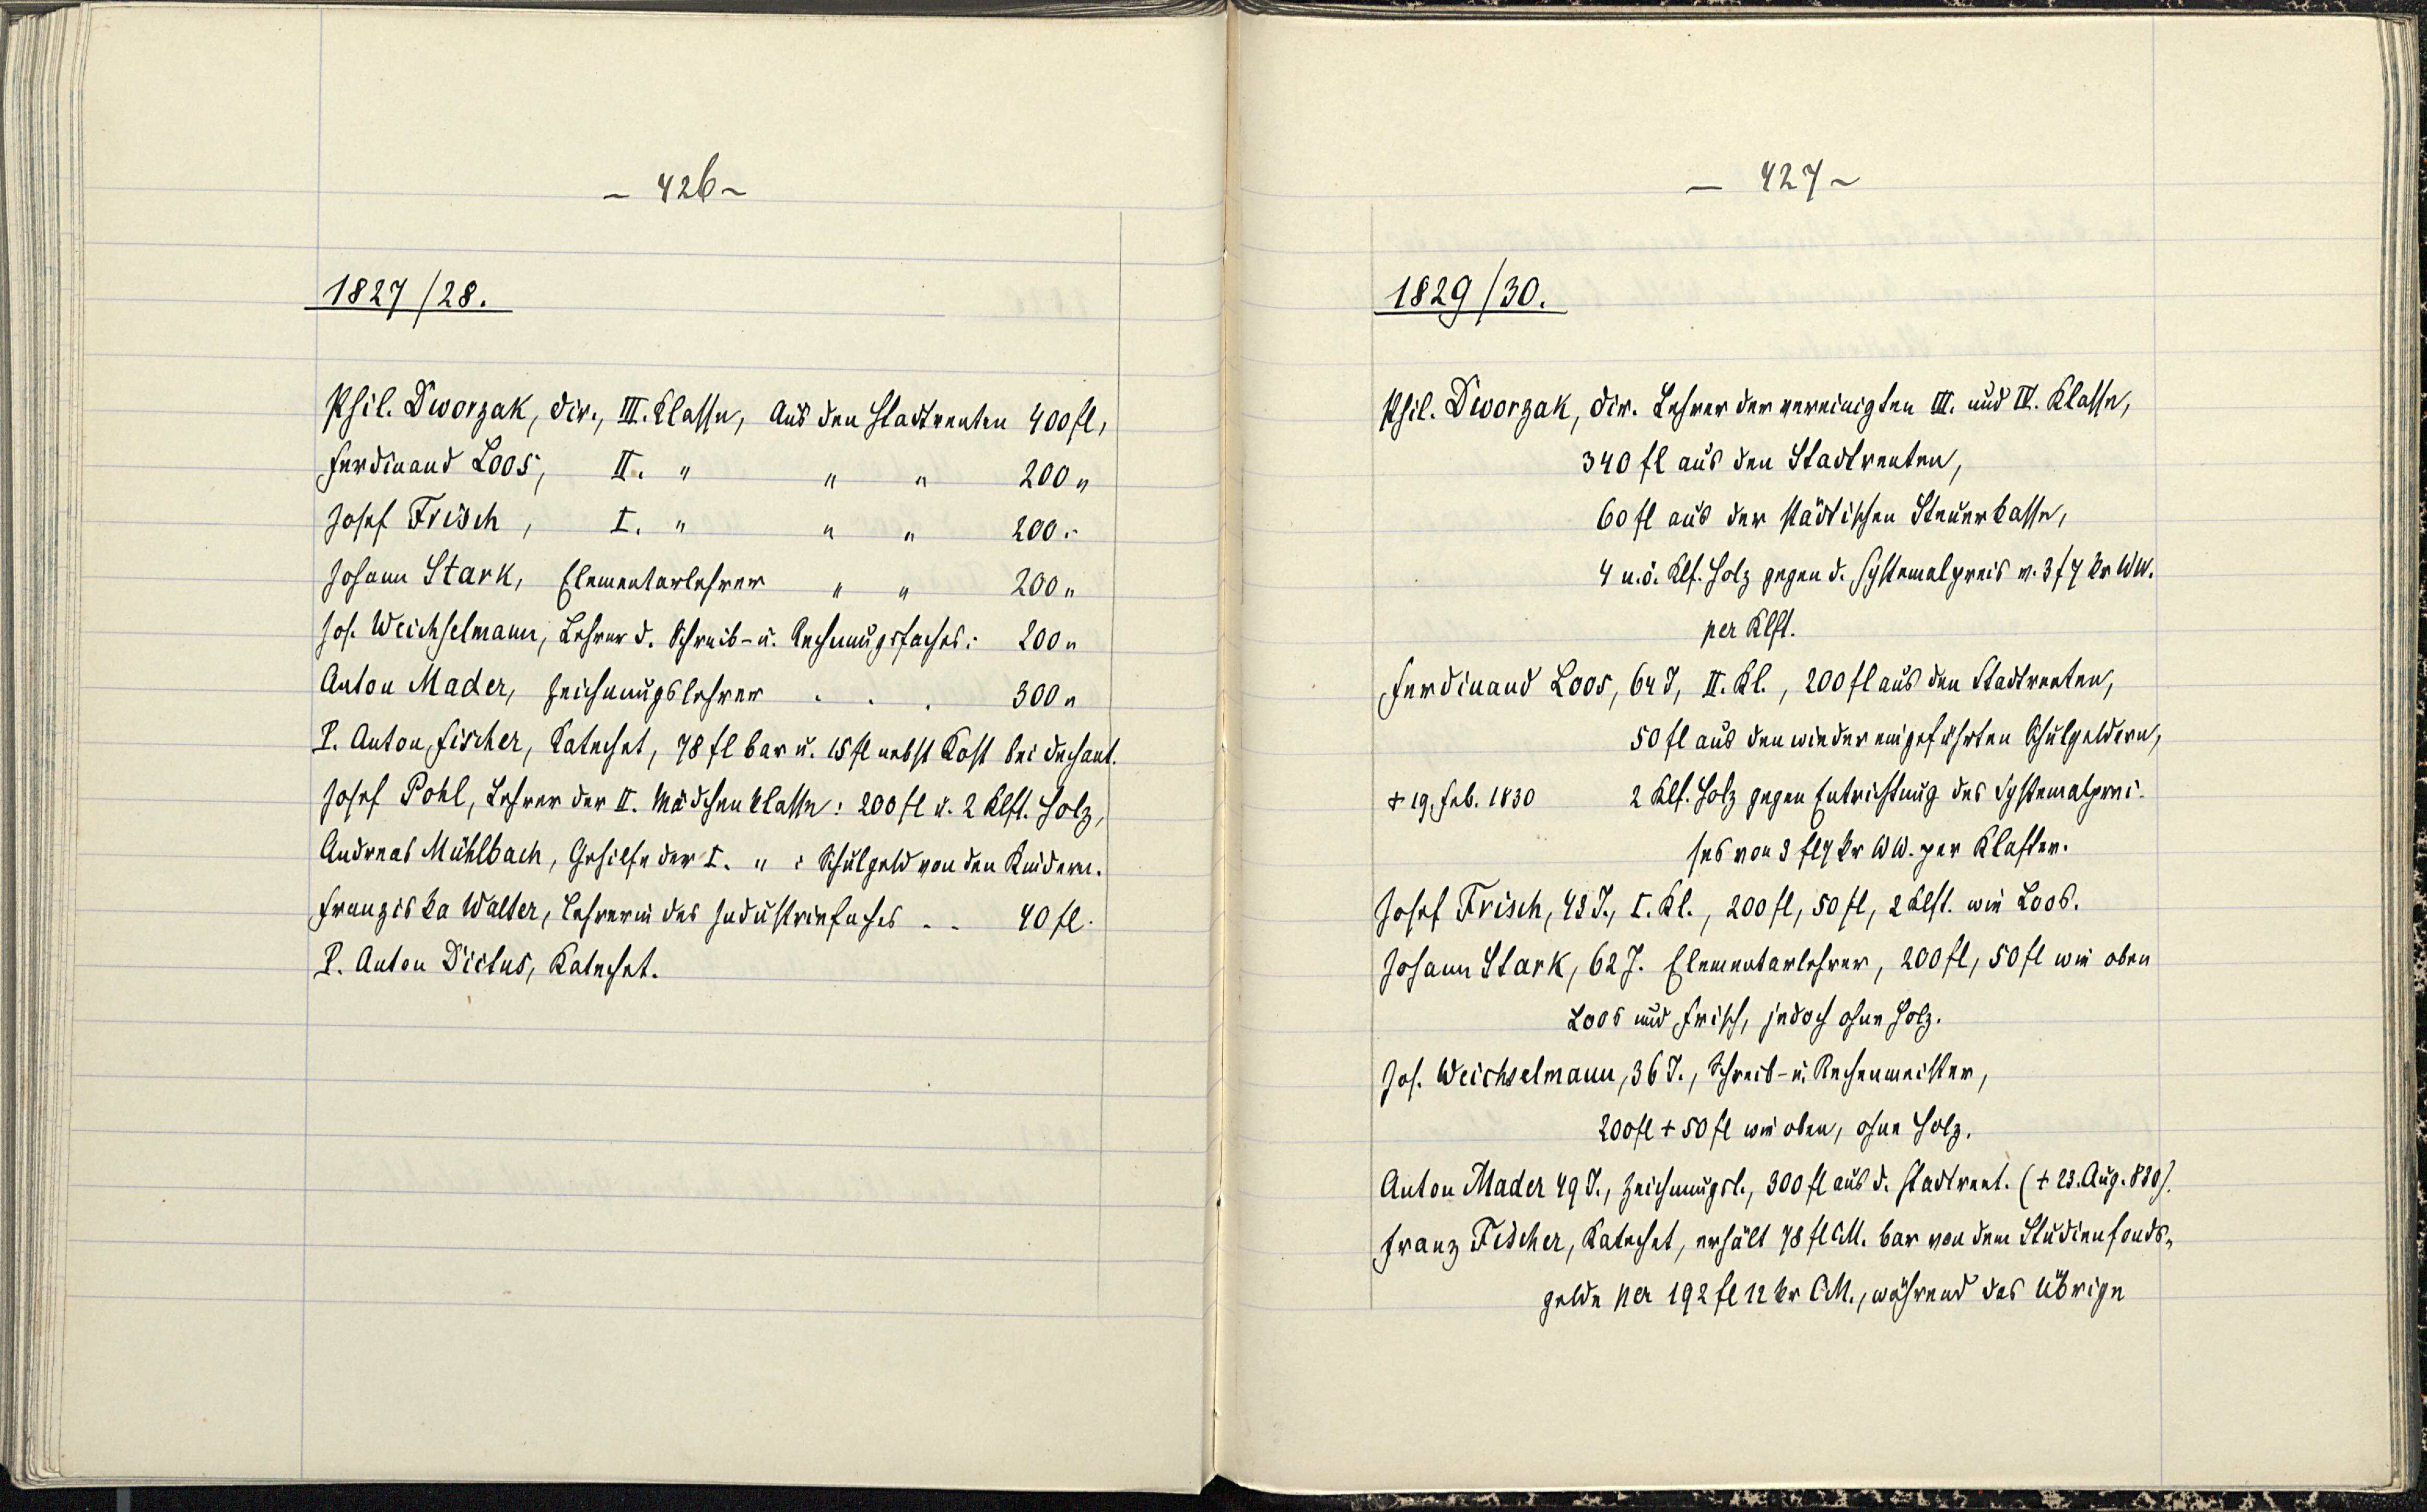 - 426 -
1827/28.
Phil. Dworzak, Dir., III. Klasse, Aus den Stadtrenten 400 fl,
Ferdinand Loos, II. " " " 200 "
Josef Frisch, I. " " " 200 "
Johann Stark, Elementarlehrer " " 200 "
Jos. Weichselmann, Lehrer d. Schreib- u. Rechnungsfaches: 200 "
Anton Mader, Zeichnungslehrer . . . 300 "
P. Anton Fischer, Katechet, 78 fl bar u. 15 fl nebst Kost bei Dechant.
Josef Pohl, Lehrer der II. Mädchenklasse: 200 fl u. 2 Klft. Holz,
Andreas Mühlbach, Gehilfe der I. " : Schulgeld von den Kindern.
Franziska Walter, Lehrerin des Industriefaches . . 40 fl.
P. Anton Dictus, Katechet.
- 427 -
1829/30.
Phil. Dworzak, Dir. Lehrer der vereinigten III. und IV. Klasse,
340 fl aus den Stadtrenten,
60 fl aus der städtischen Steuerkasse,
4 n.ö. Klf. Holz gegen d. Systemalpreis v. 3 f 7 kr WW.
per Klft.
Ferdinand Loos, 64 J, II. Kl., 200 fl aus den Stadtrenten,
50 fl aus den wieder eingeführten Schulgeldern,
+ 19. Feb. 1830 2 Klf. Holz gegen Entrichtung des Systemalprei-
ses von 3 fl 7 kr WW. per Klafter.
Josef Frisch, 43 J., I. Kl., 200 fl, 50 fl, 2 Klft. wie Loos.
Johann Stark, 62 J. Elementarlehrer, 200 fl, 50 fl wie oben
Loos und Frisch, jedoch ohne Holz.
Jos. Weichselmann, 36 J., Schreib- u. Rechenmeister,
200 fl + 50 fl wie oben, ohne Holz.
Anton Mader 49 J., Zeichnungsl., 300 fl aus d. Stadtrent. (+ 23. Aug. 830).
Franz Fischer, Katechet, erhält 78 fl CM. bar von dem Studienfonds-
gelde per 192 fl 12 kr CM., während das Übrige